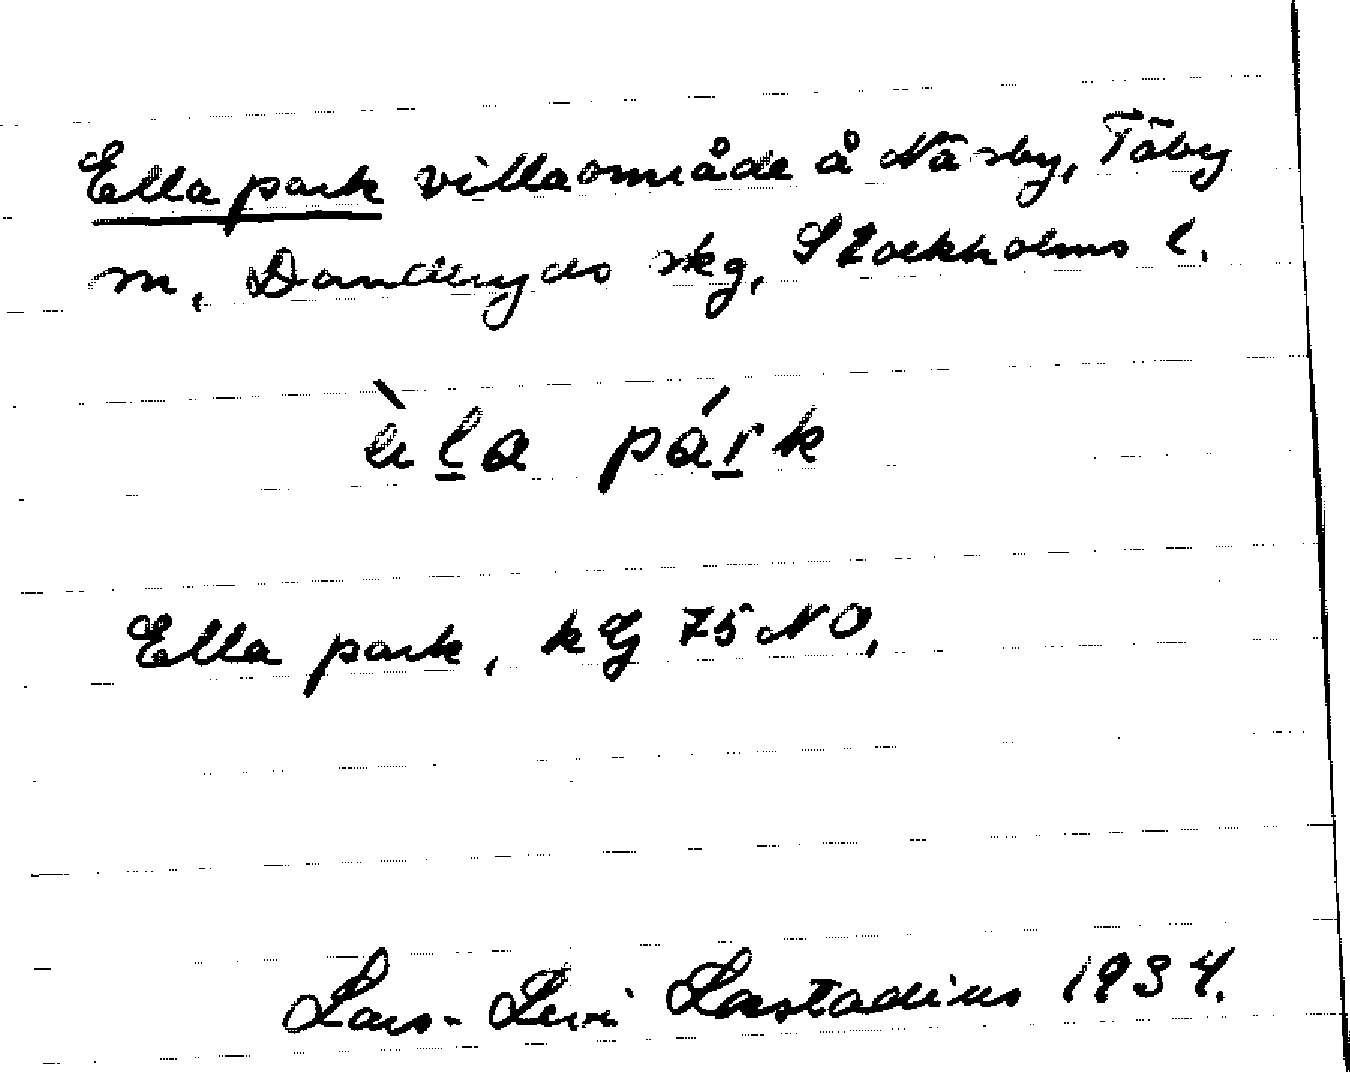 Ella park villaområde å Näsby, Täby
sn, Danderyds skg, Stockholms l.
èla párk
Ella park, kG 75 NO,
Lars-Levi Læstadius 1934.